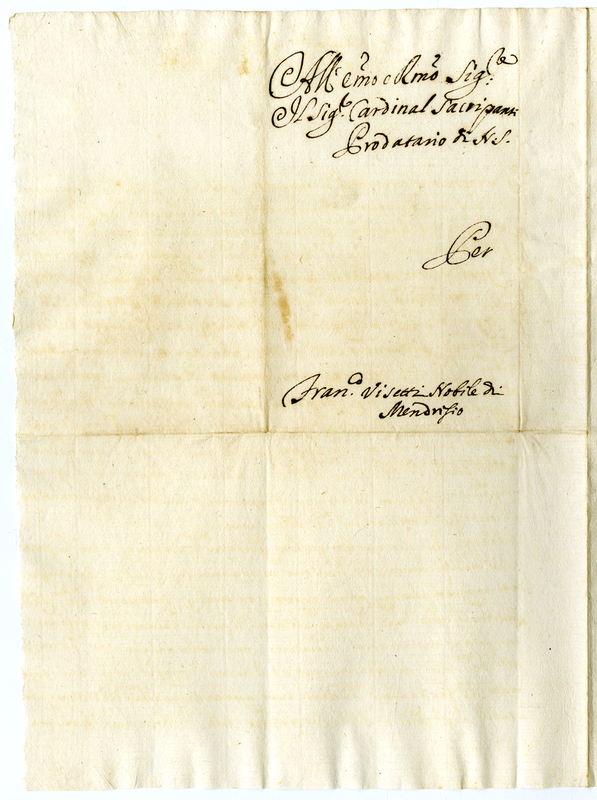 All' Emo e Rmo Sigre
Il Sigr Cardinal Sacripanti
Prodatario di N.S.
Per
Franco Visetti Nobile di
Mendrisio